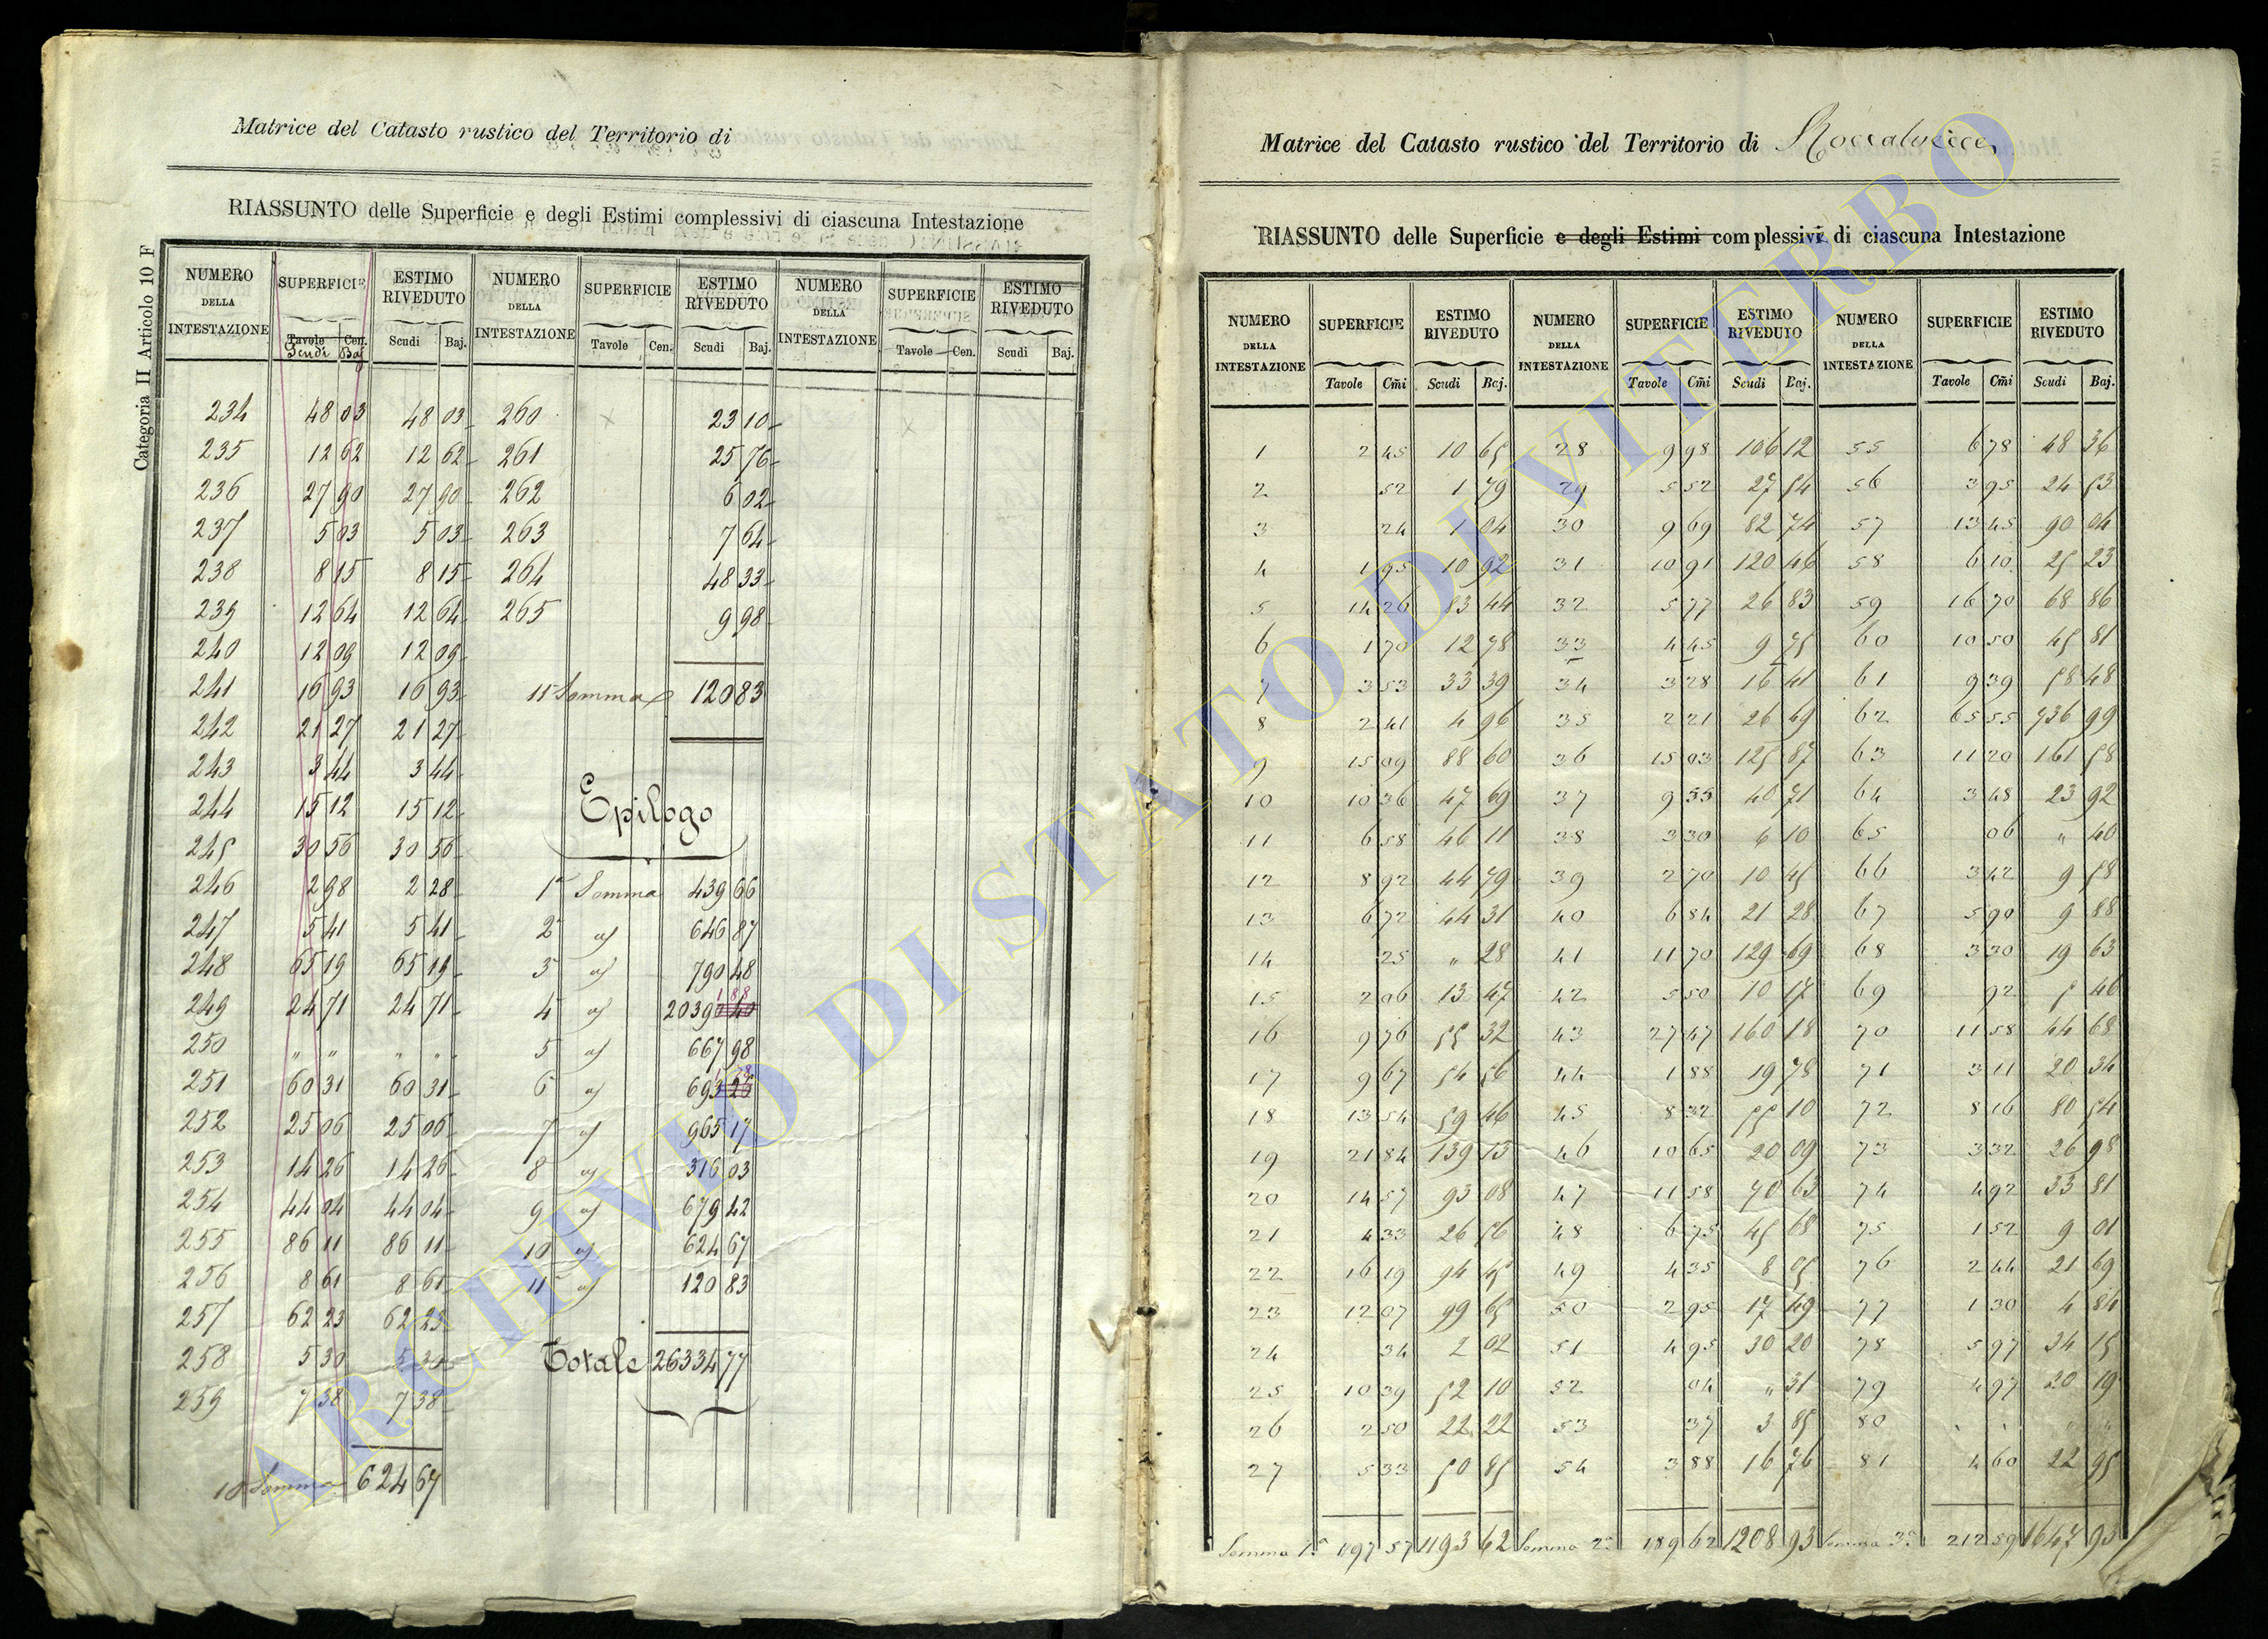 Matrice del Catasto rustico del Territorio di
RIASSUNTO delle Superficie e degli Estimi complessivi di ciascuna Intestazione
Categoria II Articolo 10 F
NUMERO DELLA INTESTAZIONE SUPERFICIE ESTIMO RIVEDUTO NUMERO DELLA INTESTAZIONE SUPERFICIE ESTIMO RIVEDUTO NUMERO DELLA INTESTAZIONE SUPERFICIE ESTIMO RIVEDUTO
Tavole Cen. Scudi Baj. Tavole Cen. Scudi Baj. Tavole Cen. Scudi Baj.
Scudi Baj
234 48 03 48 03 260 23 10
235 12 62 12 62 261 25 76
236 27 90 27 90 262 6 02
237 5 03 5 03 263 7 64
238 8 15 8 15 264 48 33
239 12 64 12 64 265 9 98
240 12 09 12 09
241 16 93 16 93 11 Somma 120 83
242 21 27 21 27
243 3 44 3 44
244 15 12 15 12 Epilogo
245 30 56 30 56
246 2 98 2 28 1a Somma 439 66
247 5 41 5 41 2 646 87
248 65 19 65 19 3 790 48
249 24 71 24 71 4 20390 40 1 88
250 " " " " 5 667 98
251 60 31 60 31 6 693
252 25 06 25 06 7 965 17
253 14 26 14 26 8 316 03
254 44 04 44 04 9 679 42
255 86 11 86 11 10 624 67
256 8 61 8 61 11 120 83
257 62 23 62 23
258 5 30 5 30 Totale 26334 77
259 7 38 7 38
10 Somma 624 67
Matrice del Catasto rustico del Territorio di Roccalvecce
RIASSUNTO delle Superficie e degli Estimi complessivi di ciascuna Intestazione
NUMERO DELLA INTESTAZIONE SUPERFICIE ESTIMO RIVEDUTO NUMERO DELLA INTESTAZIONE SUPERFICIE ESTIMO RIVEDUTO NUMERO DELLA INTESTAZIONE SUPERFICIE ESTIMO RIVEDUTO
Tavole Cm̃i Scudi Baj. Tavole Cm̃i Scudi Baj. Tavole Cm̃i Scudi Baj.
1 2 45 10 65 28 9 98 106 12 55 6 78 48 36
2 52 1 79 29 5 52 27 54 56 3 95 24 53
3 24 1 04 30 9 69 82 74 57 13 45 90 04
4 1 95 10 92 31 10 91 120 46 58 6 10 25 23
5 14 26 83 44 32 5 77 26 83 59 16 70 68 86
6 1 70 12 78 33 4 45 9 75 60 10 50 45 81
7 3 53 33 39 34 3 28 16 41 61 9 39 58 48
8 2 41 4 96 35 2 21 26 69 62 65 55 736 99
9 15 09 88 60 36 15 03 125 87 63 11 20 161 58
10 10 36 47 69 37 9 55 40 71 64 3 48 23 92
11 6 58 46 11 38 3 30 6 10 65 06 " 40
12 8 92 44 79 39 2 70 10 45 66 3 42 9 58
13 6 72 44 31 40 6 84 21 28 67 5 90 9 88
14 25 " 28 41 11 70 129 69 68 3 30 19 63
15 2 06 13 47 42 5 50 10 17 69 92 5 46
16 9 76 55 32 43 27 47 160 18 70 11 58 44 68
17 9 67 54 56 44 1 88 19 78 71 3 11 20 34
18 13 54 59 46 45 8 32 55 10 72 8 16 80 54
19 21 84 139 13 46 10 65 20 09 73 3 32 26 98
20 14 57 93 08 47 11 58 70 63 74 4 92 33 81
21 4 33 26 56 48 6 75 45 68 75 1 52 9 01
22 16 19 94 45 49 4 35 8 05 76 2 44 21 69
23 12 07 99 65 50 2 95 17 49 77 1 30 4 84
24 34 2 02 51 4 95 30 20 78 5 97 34 15
25 10 39 52 10 52 04 " 31 79 4 97 20 19
26 2 50 22 22 53 37 3 85 80 " "
27 5 33 50 85 54 3 88 16 76 81 4 60 22 95
Somma 1.a 197 57 1193 62 Somma 2a 189 62 1208 93 Somma 3a 212 59 1647 93
ARCHIVIO DI STATO DI VITERBO